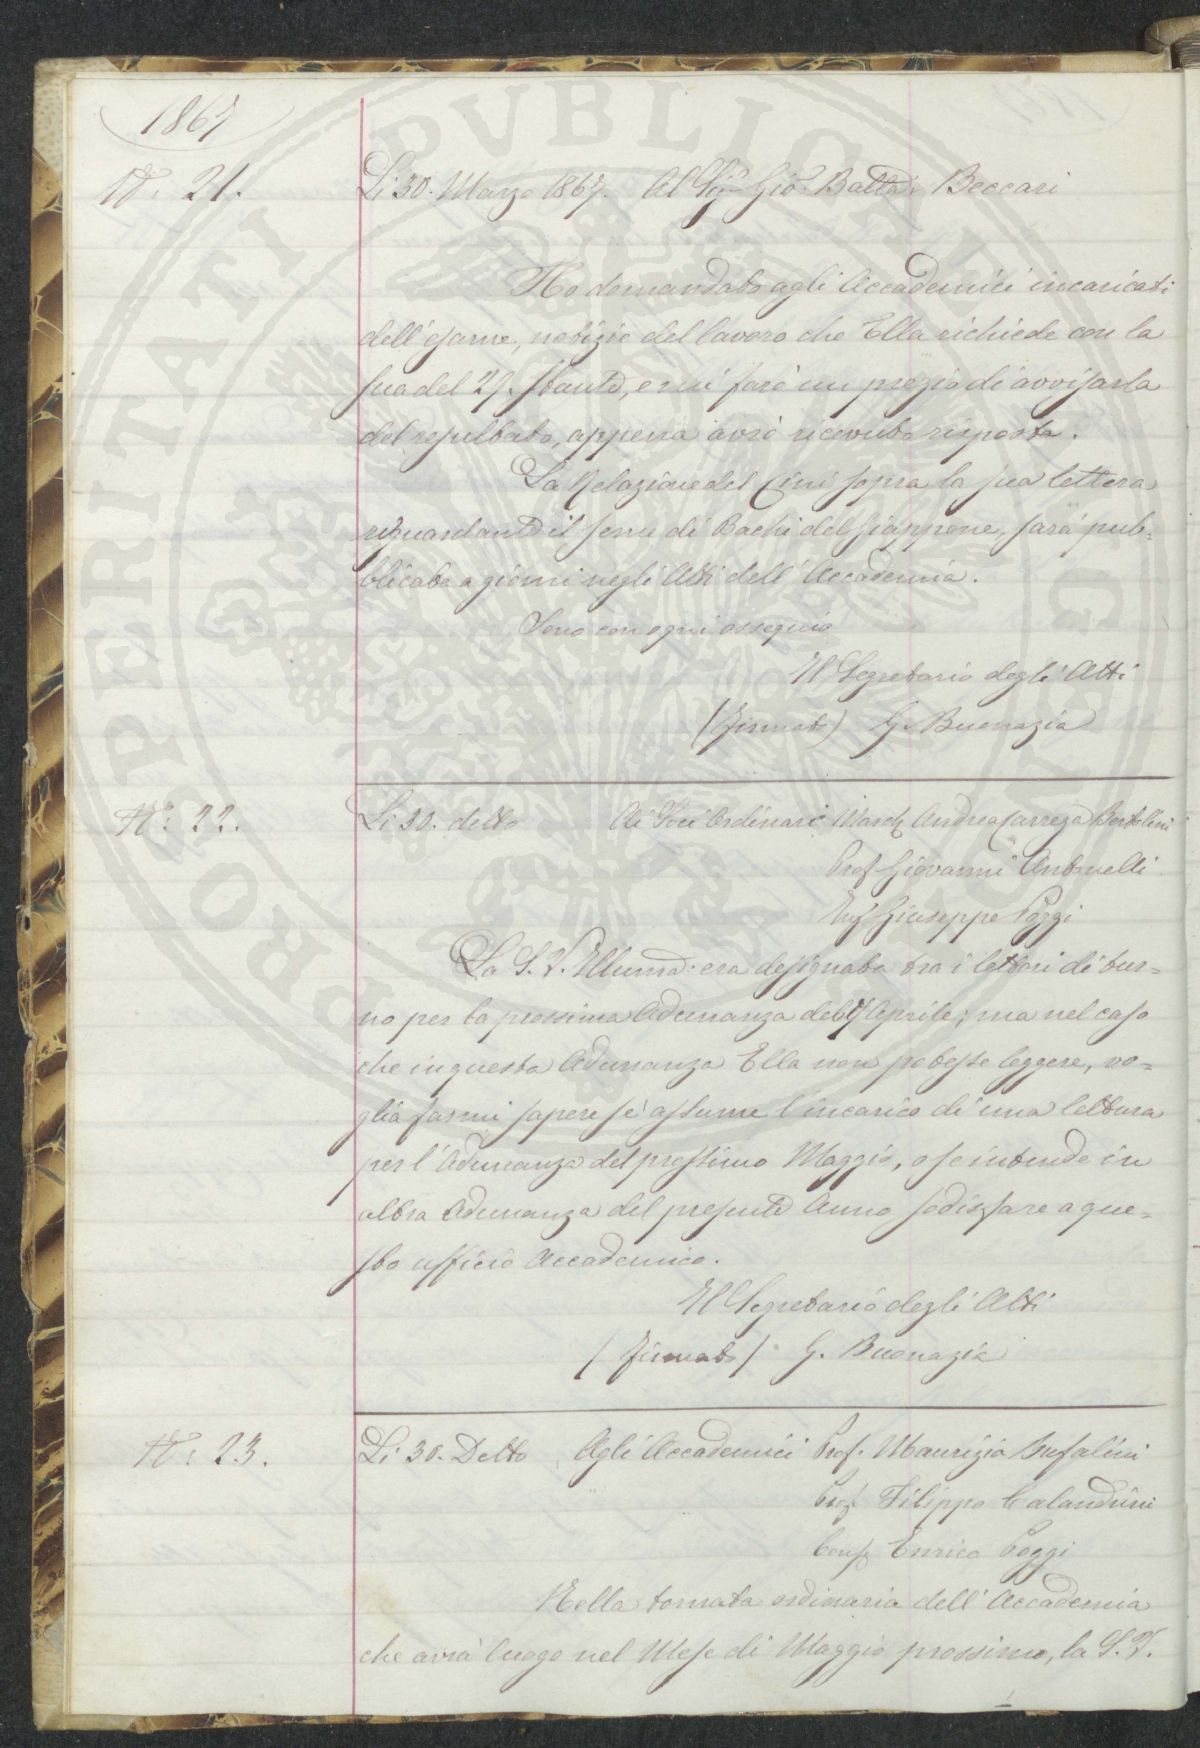 1867
N: 21. Li 30. Marzo 1867. Al Sig.r Gio. Batta. Beccari
Ho domandato agli Accademici incaricati
dell'esame, notizie del lavoro che Ella richiede con la
sua del 27. stante, e mi farò un pregio di avvisarla
del resultato, appena avrò ricevuto risposta.
La Relazione del Cini sopra la sua lettera
riguardante il seme di Bachi del Giappone, sarà pub=
blicata a giorni negli Atti dell'Accademia.
Sono con ogni ossequio
Il Segretario degli Atti
(Firmato) G. Buonazia
N: 22. Li 30. detto Ai Soci Ordinari March. Andrea Carrega Bertolini
Prof. Giovanni Antonelli
Giuseppe Poggi
La S. V. Illuma. era designata tra i lettori di tur=
no per la prossima Adunanza del 7 Aprile; ma nel caso
che in questa Adunanza Ella non potesse leggere, vo=
glia farmi sapere se assume l'incarico di una lettura
per l'Adunanza del prossimo Maggio, o se intende in
altra Adunanza del presente Anno sodisfare a que=
sto ufficio Accademico.
Il Segretario degli Atti
/ Firmato / G. Buonazia
N: 23. Li 30. Detto Agli Accademici Prof. Maurizio Bufalini
Prof. Filippo Calandrini
Enrico Poggi
Nella tornata ordinaria dell'Accademia
che avrà luogo nel Mese di Maggio prossimo, la S. V.
PROSPERITATI PVBLICAE